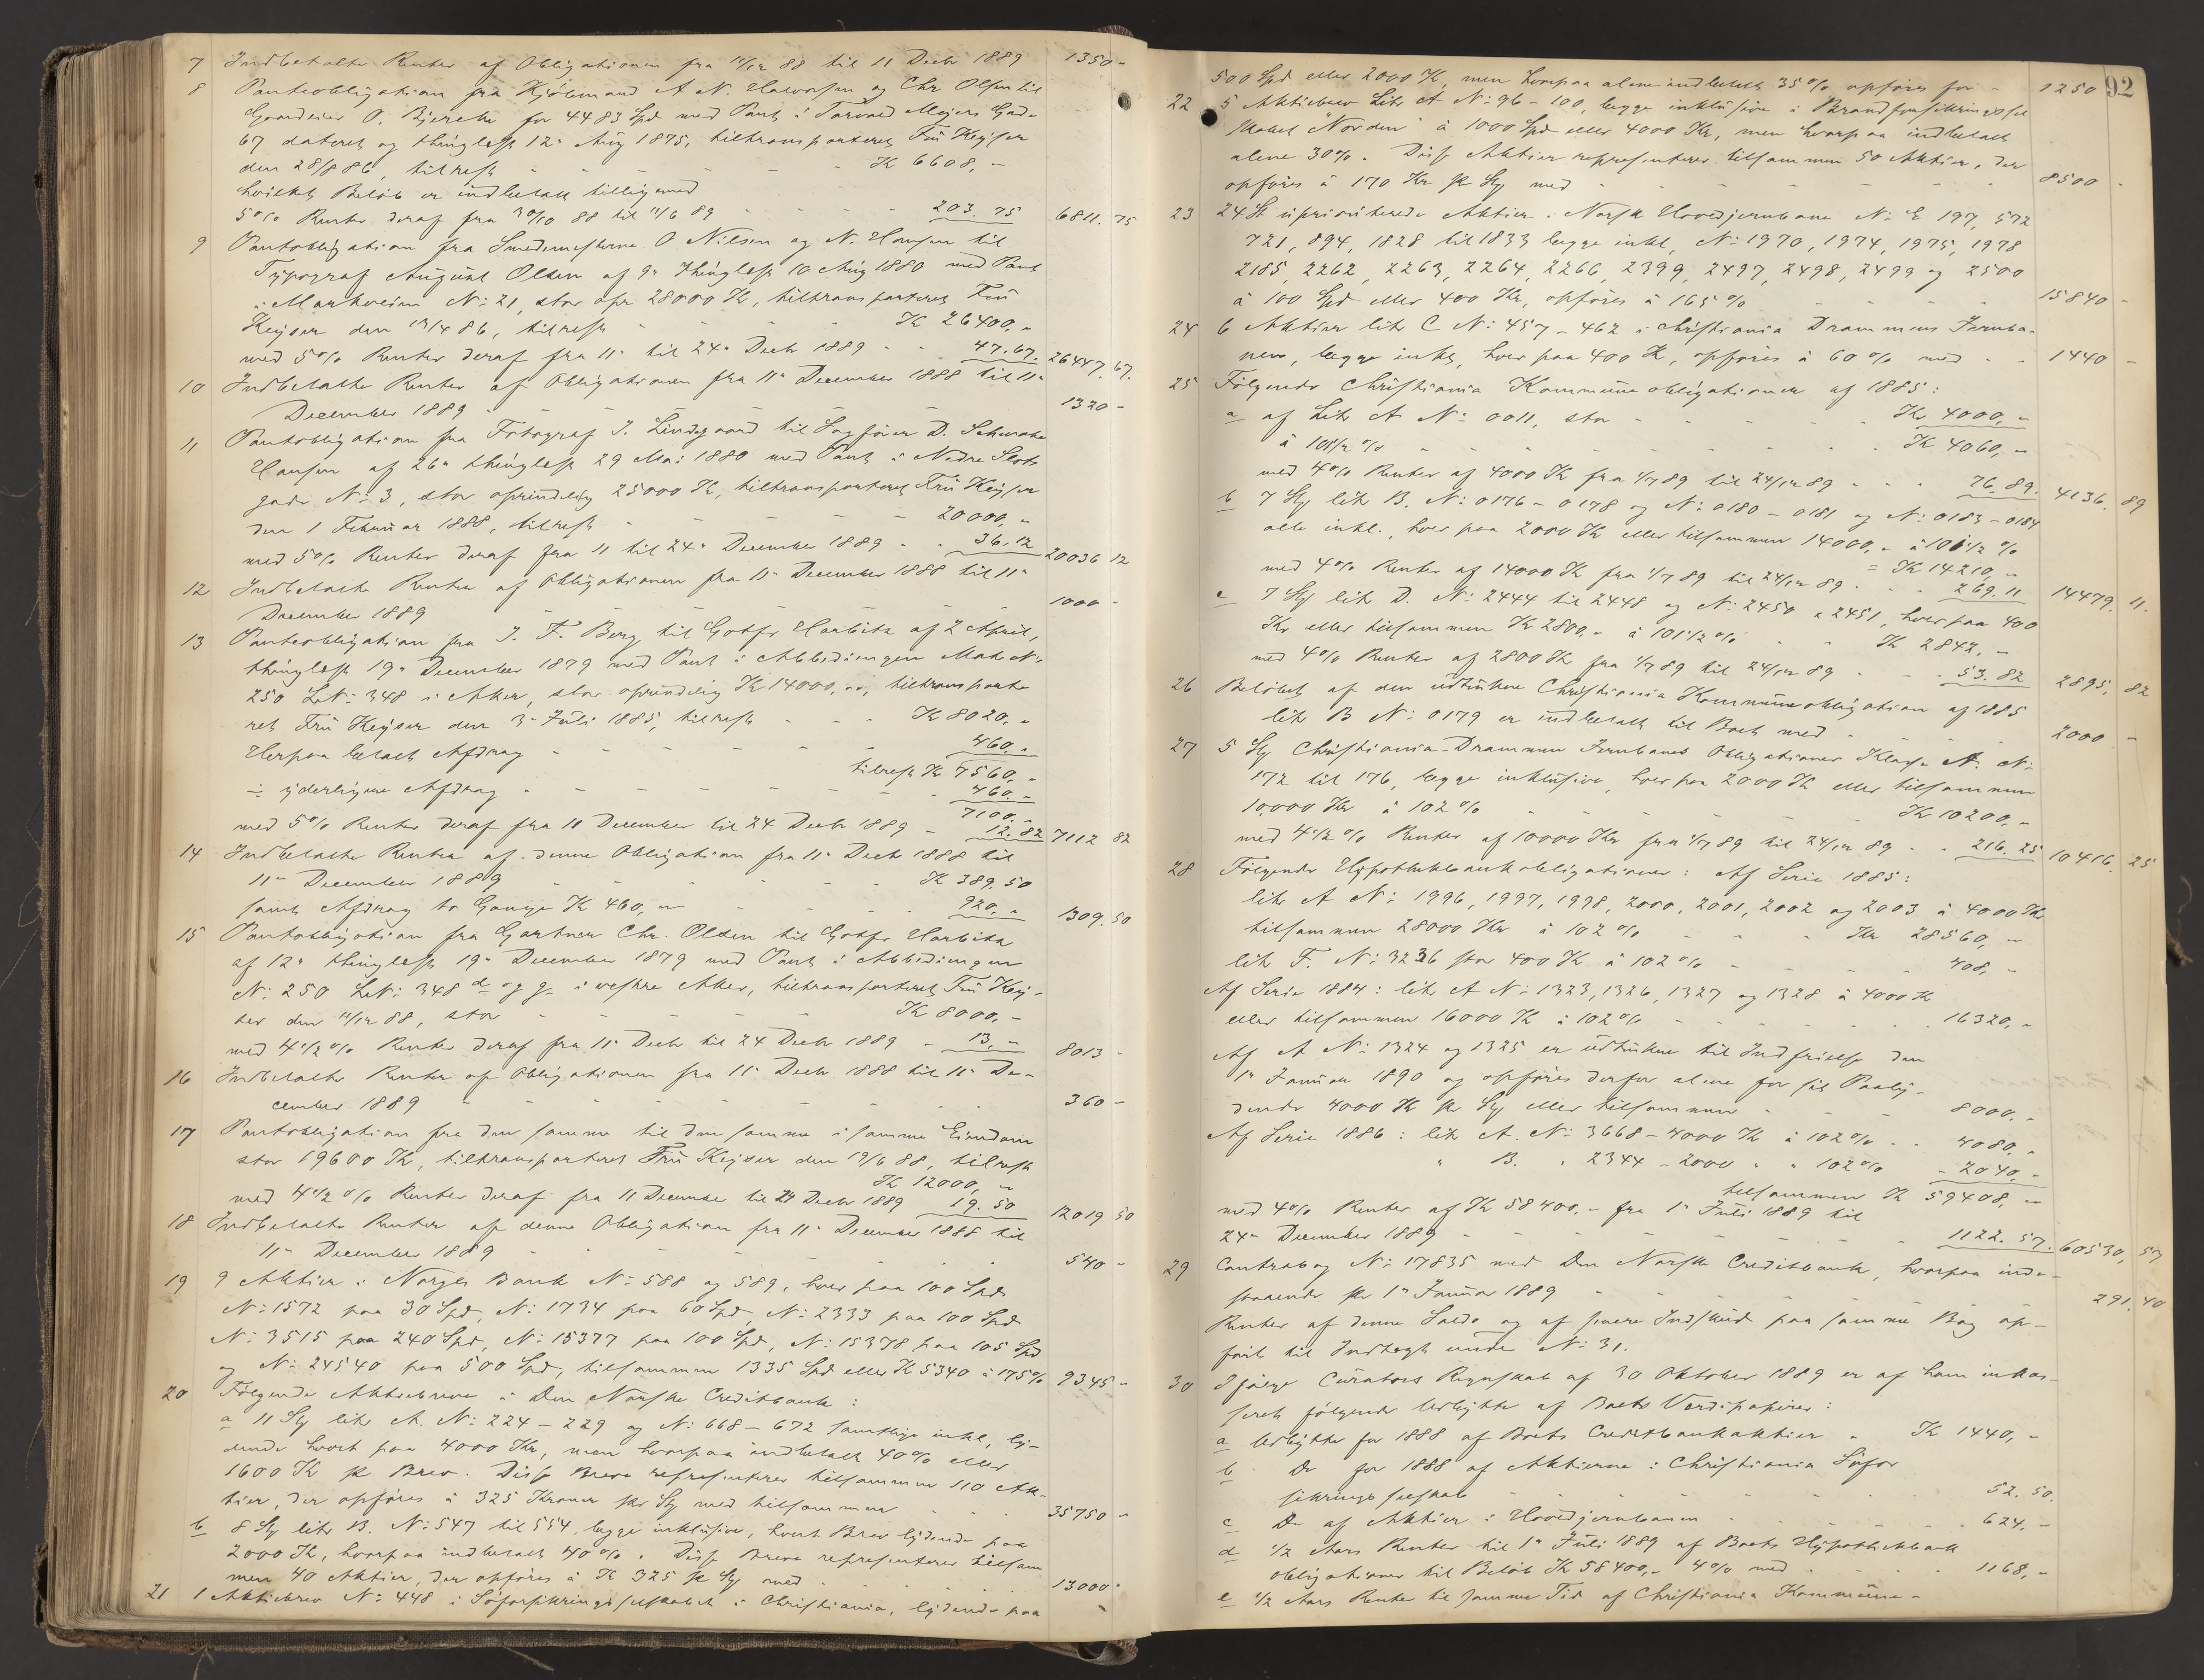 7 Indbetalte Renter af Obligationen fra 11/12 88 til 11 Decbr 1889 1350 -
8 Panteobligation fra Kjøbmand A N. Halvorsen og Chr Olsen til
Gaardeier O. Bjercke for 4483 Spd med Pant i Torvald Meyers Gade
67 dateret og thinglæst 12te Aug 1875, tiltransporteret Fru Keyser
den 28/8 86, tilrest - - - - Kr 6608, -
hvilket Beløb er indbetalt tilligemed
5% Renter deraf fra 30/10 88 til 11/6 89 - - - - 203. 75 6811. 75
9 Panteobligation fra Smedemestrene O Nilsen og N. Hansen til
Typograf August Olsen af 9de thinglæst 10 Aug 1880 med Pant
i Markveien No 21, stor opr 28000 Kr, tiltransporteret Fru
Keyser den 12/4 86, tilrest - - - Kr 26400, -
med 5% Renter deraf fra 11te til 24de Decbr 1889 - - 47. 67. 26447. 67.
10 Indbetalte Renter af Obligationen fra 11te December 1888 til 11te
December 1889 - - - - - - 1320 -
11 Panteobligation fra Fotograf J. Lindegaard til Sagfører D. Schwabe
Hansen af 26de thinglæst 29 Mai 1880 med Pant i Nedre Slots
gade No 3, stor oprindelig 25000 Kr, tiltransporteret Fru Keyser
den 1 Februar 1888, tilrest - - - - - 20000, -
med 5% Renter deraf fra 11 til 24de December 1889 - - 36, 12 20036 12
12 Indbetalte Renter af Obligationen fra 11te December 1888 til 11te
December 1889 - - - - - - 1000 -
13 Panteobligation fra J. F. Berg til Gotfr Harbitz af 2 April,
thinglæst 19de December 1879 med Pant i Afbedingen Matr No
250 LNo 348 i Aker, stor oprindelig Kr 14000, -, tiltransporte
ret Fru Keyser den 3die Juli 1885, tilrest - - - Kr 8020, -
Herpaa betalt Afdrag - - - - - - 460. -
tilrest Kr 7560, -
÷ yderligere Afdrag - - - - - - 460. -
7100. -
med 5% Renter deraf fra 11 December til 24 Decbr 1889 - 12. 82 7112 82
14 Indbetalte Renter af denne Obligation fra 11te Decbr 1888 til
11te December 1889 - - - - - - Kr 389. 50
samt Afdrag to Gange Kr 460, - - - - - 920. - 1309. 50
15 Panteobligation fra Gartner Chr. Olsen til Gotfr Harbitz
af 12te thinglæst 19de December 1879 med Pant i Afbedingen
No 250 LNo 348 d og g i vestre Aker, tiltransporteret Fru Key-
ser den 11/12 88, stor - - - - - Kr 8000, -
med 4 1/2 % Renter deraf fra 11te Decbr til 24 Decbr 1889 - 13, - 8013 -
16 Indbetalte Renter af Obligationen fra 11te Decbr 1888 til 11te De-
cember 1889 - - - - - - 360 -
17 Panteobligation fra den samme til den samme i samme Eiendom
stor 19600 Kr, tiltransporteret Fru Keyser den 19/6 88, tilrest
Kr 12000, -
med 4 1/2 % Renter deraf fra 11 December til 24 Decbr 1889 19. 50 12019 50
18 Indbetalte Renter af denne Obligation fra 11te December 1888 til
11te December 1889 - - - - - - 540 -
19 9 Aktier i Norges Bank No 588 og 589, hver paa 100 Spd
No 1572 paa 30 Spd, No 1734 paa 60 Spd, No 2333 paa 100 Spd
No 3515 paa 240 Spd, No 15377 paa 100 Spd, No 15378 paa 105 Spd
og No 24540 paa 500 Spd, tilsammen 1335 Spd eller Kr 5340 à 175% 9345 -
20 Følgende Aktiebreve i Den Norske Creditbank:
a 11 St litr A. No 224 - 229 og No 668 - 672 samtlige inkl, ly-
dende hvert paa 4000 Kr, men hvorpaa indbetalt 40% eller
1600 Kr pr Brev. Disse Breve repræsenterer tilsammen 110 Ak-
tier, der opføres à 325 Kroner pr St med tilsammen - - 35750 -
b 8 St litr B. No 547 til 554, begge inklusive, hvert Brev lydende paa
2000 Kr, hvorpaa indbetalt 40%. Disse Breve repræsenterer tilsam
men 40 Aktier, der opføres à Kr 325 pr St med - - - - 13000 -
21 1 Aktiebrev No 448 i Søforsikringsselskabet i Christiania, lydende paa
92
500 Spd eller 2000 Kr, men hvorpaa alene indbetalt 35% opføres for - 1250 -
22 5 Aktiebreve Litr A No 96 - 100, begge inklusive i Brandforsikringssel
skabet "Norden" à 1000 Spd eller 4000 Kr, men hvorpaa indbetalt
alene 30%. Disse Aktier repræsenterer tilsammen 50 Aktier, der
opføres à 170 Kr pr St med - - - - - - 8500 -
23 24 St upriviterede Aktier i Norsk Hovedjernbane No E 197, 572
721, 894, 1828 til 1833 begge inkl, No 1970, 1974, 1975, 1978
2185, 2262, 2263, 2264, 2266, 2399, 2497, 2498, 2499 og 2500
à 100 Spd eller 400 Kr, opføres à 165% - - - - 15840 -
24 6 Aktier litr C No 457 - 462 i Christiania Drammens Jernba-
nen, begge inkl, hver paa 400 Kr, opføres à 60% med - - 1440 -
25 Følgende Christiania Kommuneobligationer af 1885:
a af Litr A No 0011, stor - - - - - Kr 4000, -
à 101 1/2 % - - - - - - Kr 4060, -
med 4% Renter af 4000 Kr fra 1/7 89 til 24/12 89 - - - 76. 89. 4136. 89
b 7 St litr B. No 0176 - 0178 og No 0180 - 0181 og No 0183 - 0184
alle inkl., hver paa 2000 Kr eller tilsammen 14000, - à 101 1/2 %
= Kr 14210, -
med 4% Renter af 14000 Kr fra 1/7 89 til 24/12 89 - - - 269. 11 14479. 11.
c 7 St litr D. No 2444 til 2448 og No 2450 & 2451, hver paa 400
Kr eller tilsammen Kr 2800, - à 101 1/2 % - - Kr 2842, -
med 4% Renter af 2800 Kr fra 1/7 89 til 24/12 89 - - - 53. 82 2895, 82
26 Beløbet af den udtrukne Christiania Kommuneobligation af 1885
litr B No 0179 er indbetalt til Boet med - - - - 2000 -
27 5 St Christiania-Drammen Jernbanes Obligationer Klasse A. No
172 til 176, begge inklusive, hver paa 2000 Kr eller tilsammen
10,000 Kr à 102% - - - - - Kr 10200, -
med 4 1/2 % Renter af 10000 Kr fra 1/7 89 til 24/12 89 - - 216. 25 10416. 25
28 Følgende Hypothekbankobligationer: Af Serie 1885:
litr A No 1996, 1997, 1998, 2000, 2001, 2002 og 2003 à 4000 Kr
tilsammen 28000 Kr à 102% - - - Kr 28560, -
litr F. No 3236 stor 400 Kr à 102% - - - - 408, -
Af Serie 1884: litr A No 1323, 1326, 1327 og 1328 à 4000 Kr
eller tilsammen 16000 Kr à 102% - - - - - 16320, -
Af A No 1324 og 1325 er udtrukne til Indfrielse den
1te Januar 1890 og opføres derfor alene for sit Paaly-
dende 4000 Kr pr St eller tilsammen - - - - 8000, -
Af Serie 1886: litr A. No 3668 - 4000 Kr à 102% - - 4080, -
" B. " 2344 - 2000 " " 102% - 2040, -
tilsammen Kr 59408, -
med 4% Renter af Kr 58400, - fra 1te Juli 1889 til
24de December 1889 - - - - - - 1122. 57. 60530, 57
29 Contrabog No 17835 med Den Norske Creditbank, hvorpaa inde-
staaende pr 1te Januar 1889 - - - - - - 291. 40
Renter af denne Saldo og af senere Indskud paa samme Bog op-
ført til Indtægt under No 31.
30 Ifølge Curators Regnskab af 30 Oktober 1889 er af ham inkas-
seret følgende Udbytte af Boets Værdipapirer:
a Udbytte for 1888 af Boets Creditbankaktier - Kr 1440, -
b Do for 1888 af Aktierne i Christiania Søfor
sikringsselskab - - - - - - 52. 50.
c Do af Aktier i Hovedjernbanen - - - - - 624, -
d 1/2 Aars Renter til 1te Juli 1889 af Boets Hypothekbank
obligationer til Beløb Kr 58400, - 4% med - - - - 1168, -
e 1/2 Aars Rente til samme Tid af Christiania Kommune-